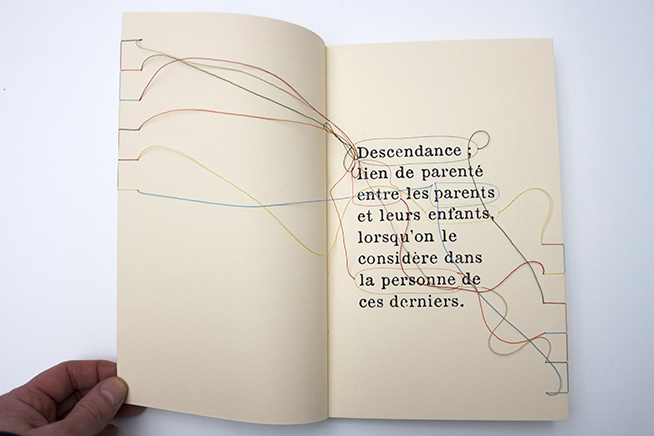 Descendance :
lien de parenté
entre les parents
et leurs enfants,
lorsqu'on le
considère dans
la personne de
ces derniers.